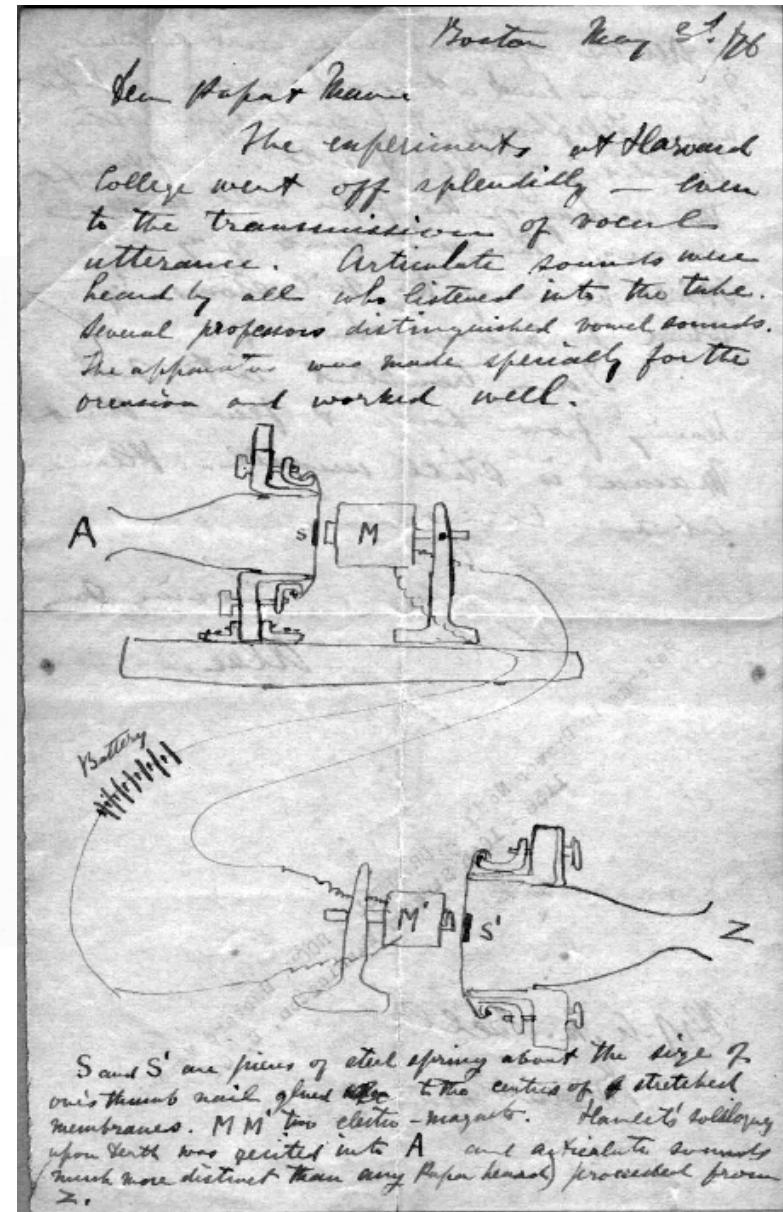 Boston May 3d. /76
Dear Papa & Mama
The experiments at Harvard
College went off splendidly — even
to the transmission of vocal
utterance. Articulate sounds were
heard by all who listened into the tube.
Several professors distinguished vowel sounds.
The apparatus was made specially for the
occasion and worked well.
A
S
M
Battery
M'
S'
Z
S and S' are pieces of steel spring about the size of
one's thumb nail glued to the centres of stretched
membranes. M M' two electro-magnets. Hamlet's soliloquy
upon Death was recited into A and articulate sounds
much more distinct than any Papa heard) proceeded from
Z.